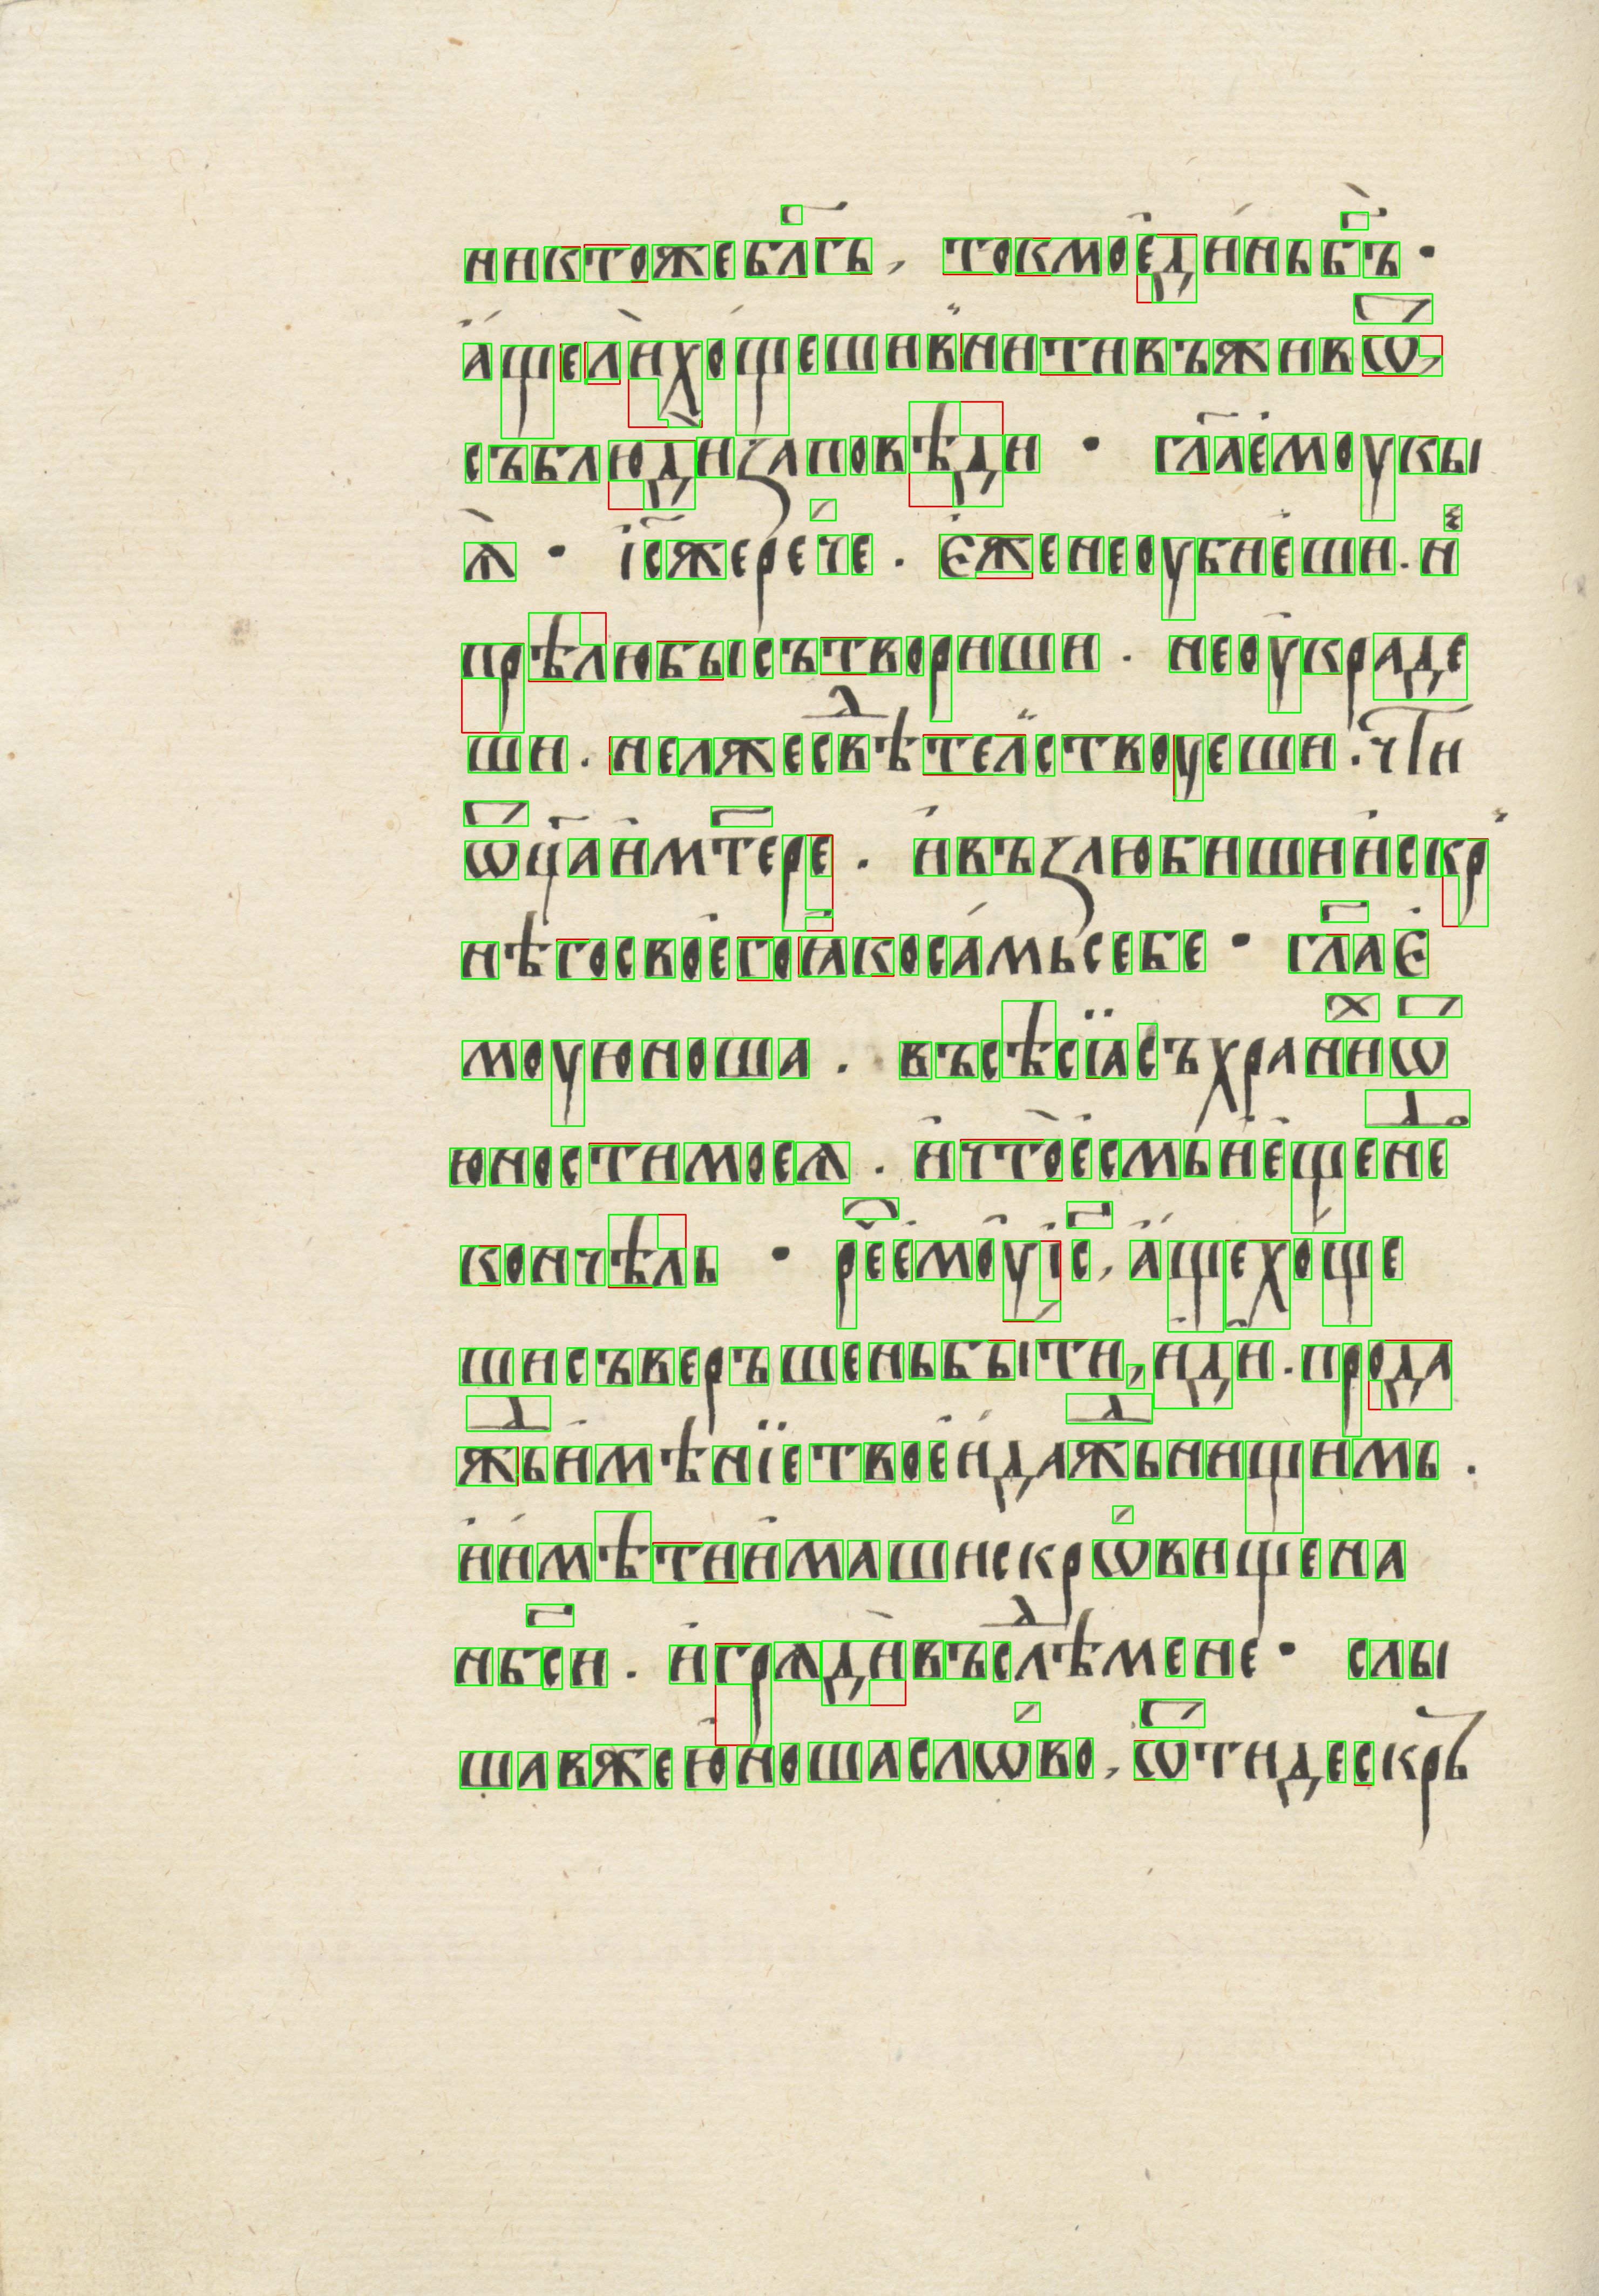 никтожебл҃гъ, токмоѐдиньб҃ъ ·
а҆́щелѝхо́щешив̾нитивъжив̾ѿ,
съблюдизаповѣди · гл҃ае҆моукы
ѧ҆̀ · і҆с҃жерече́ . є҆женеоубїе҆ши . й
прѣлюбысътвориши . неоу҆краде
ши . нелжесвѣⷣтел̾ствоуеши . чт҃и
ѿц҃аи҆мт҃ере . и҆възлюбишии҆скр̾
нѣгосвоегоꙗ҆косáмьсебе · гл҃ає҆
моуюноша . въсѣсїасъхраниⷯѿ
юностимоеѧ . и҆чтòе҆смьне҆щеⷣне
кончѣль · рⷱ҇ее҆моу҆і҆с҃, а҆́щехоще
шисъвершеньбыти, иди . прода
жⷣьи҆мѣнїетвоеи҆дажⷣьнищимь .
и҆и҆мѣтии҆машискрѡ́вищена
нб҃си . и҆грѧдѝвъслⷣѣмене · слы
шавжею҆ношаслѡ́во, ѿтидескрь